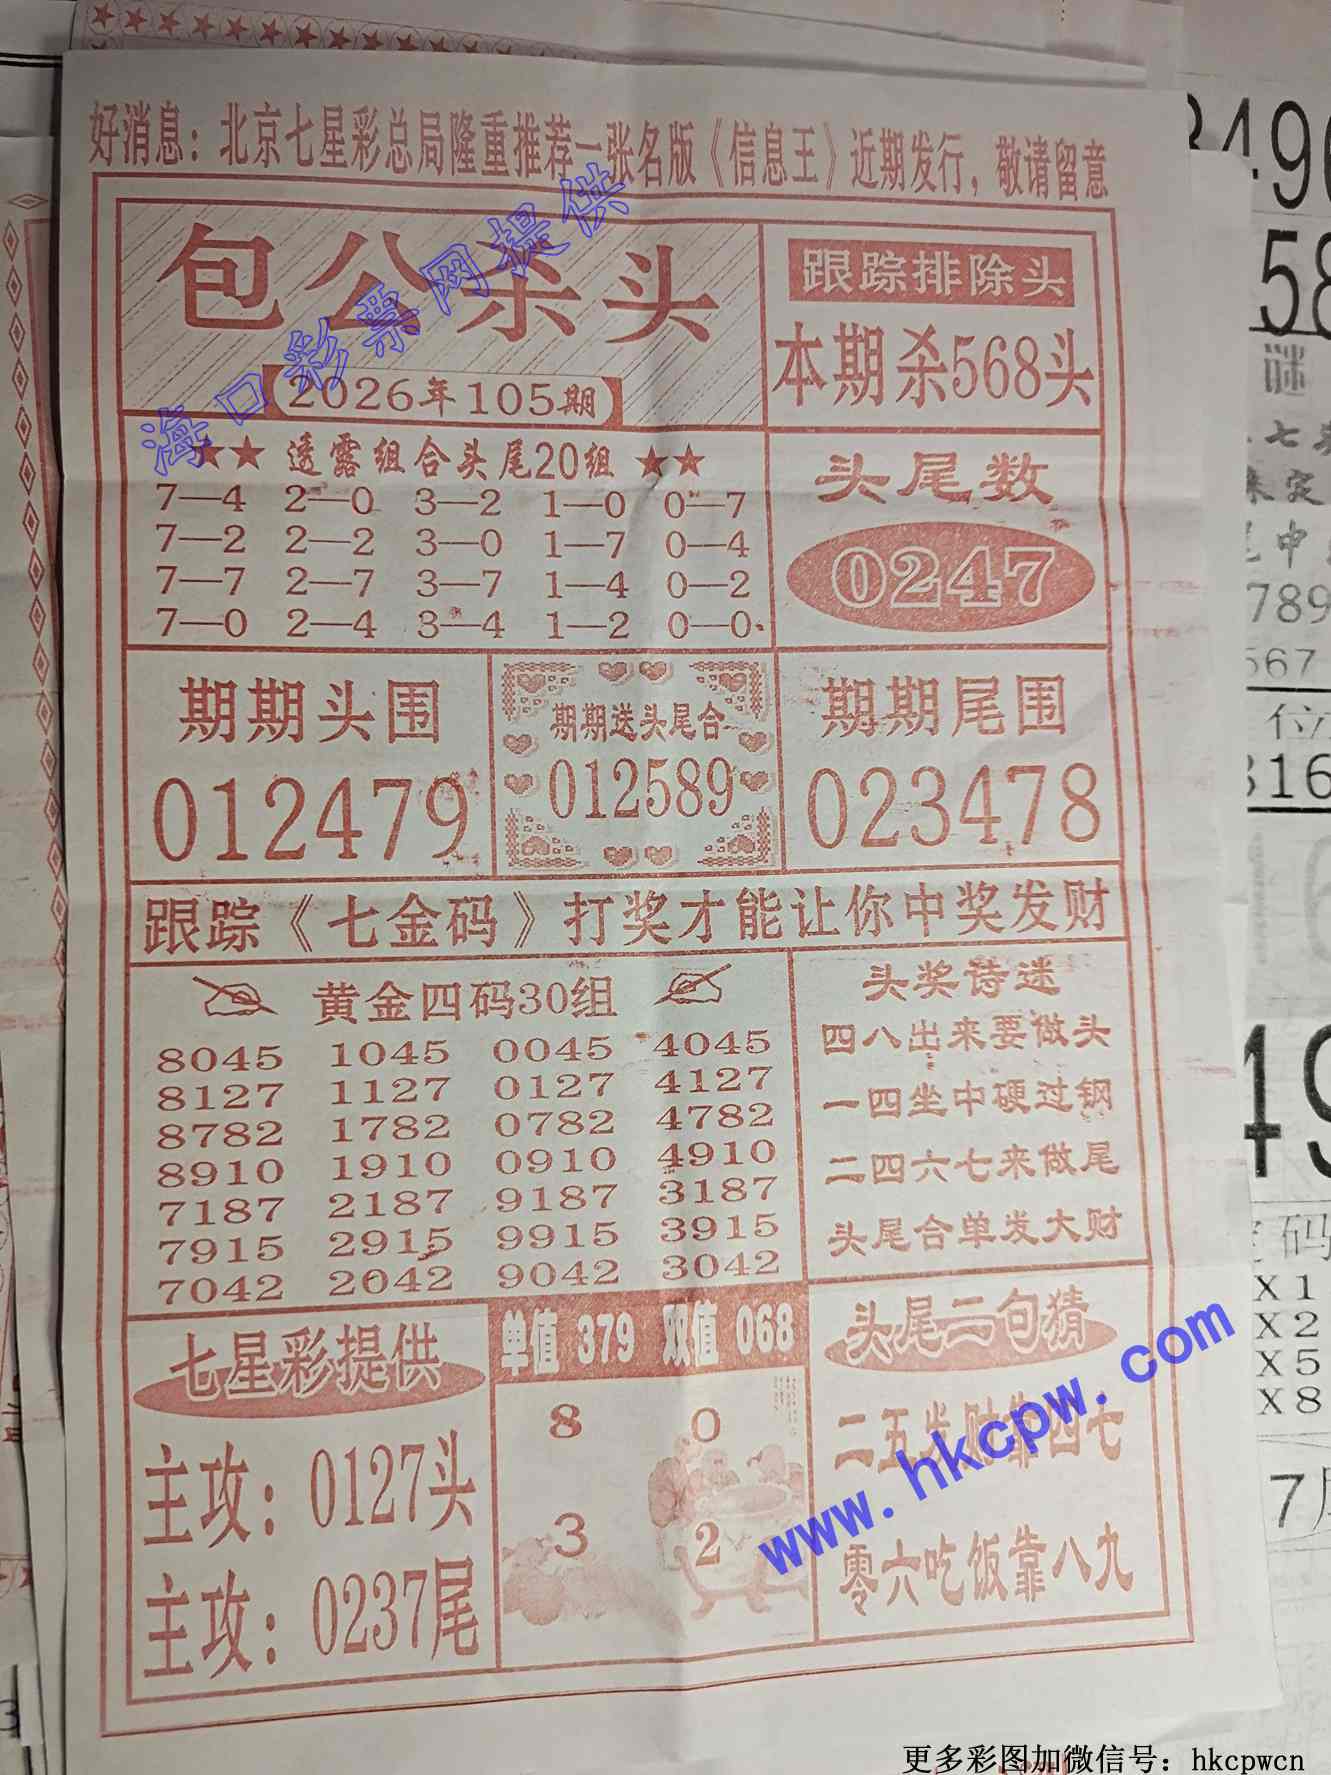 好消息：北京七星彩总局隆重推荐一张名版《信息王》近期发行，敬请留意
包公杀头
2026年105期
跟踪排除头
本期杀568头
★★ 透露组合头尾20组 ★★
7—4 2—0 3—2 1—0 0—7
7—2 2—2 3—0 1—7 0—4
7—7 2—7 3—7 1—4 0—2
7—0 2—4 3—4 1—2 0—0
头尾数
0247
期期头围
012479
期期送头尾合
012589
期期尾围
023478
跟踪《七金码》打奖才能让你中奖发财
黄金四码30组
8045 1045 0045 4045
8127 1127 0127 4127
8782 1782 0782 4782
8910 1910 0910 4910
7187 2187 9187 3187
7915 2915 9915 3915
7042 2042 9042 3042
头奖诗迷
四八出来要做头
一四坐中硬过钢
二四六七来做尾
头尾合单发大财
七星彩提供
主攻：0127头
主攻：0237尾
单值 379 双值 068
8 0
3 2
头尾二句猜
二五发财靠四七
零六吃饭靠八九
海口彩票网提供
www.hkcpw.com
58
谜
789
567
位
316
49
码
X1
X2
X5
X8
7
更多彩图加微信号：hkcpwcn